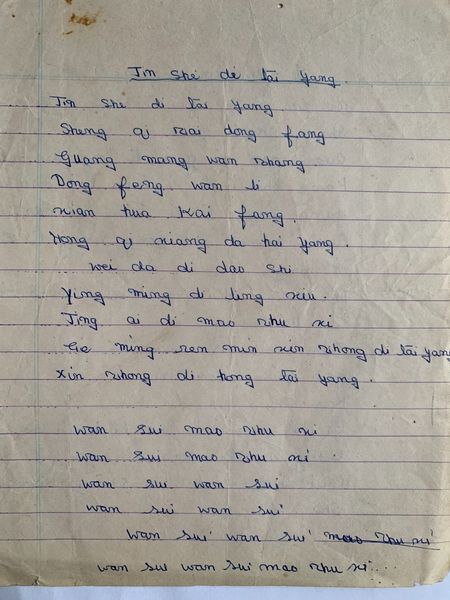 Jin she de tai yang.
Jin she di tai yang
Sheng qi zai dong fang
Guang mang wan zhang
Dong feng wan li
xian hua kai fang.
Hong qi xiang da hai yang.
wei da di dao shi
Ying ming di ling xiu.
Jing ai di mao zhu xi
Ge ming ren min xin zhong di tai yang
Xin zhong di hong tai yang.
wan sui mao zhu xi
wan sui mao zhu xi
wan sui wan sui
wan sui wan sui
wan sui wan sui mao zhu xi
wan sui wan sui mao zhu xi....